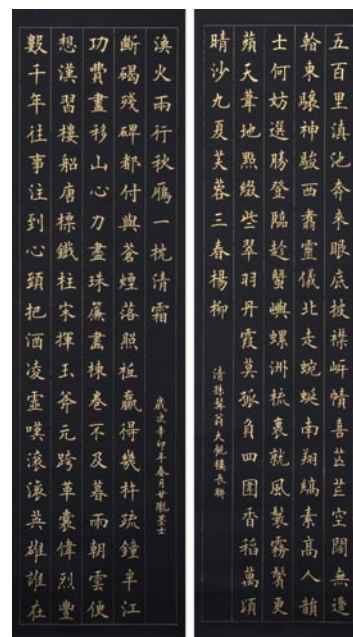 五百里滇池奔來眼底披襟岸幘喜茫茫空闊無邊
看東驤神駿西翥靈儀北走蜿蜒南翔縞素高人韻
士何妨選勝登臨趁蟹嶼螺洲梳裹就風鬟霧鬢更
蘋天葦地點綴些翠羽丹霞莫孤負四圍香稻萬頃
晴沙九夏芙蓉三春楊柳
清孫髯翁大觀樓長聯
數千年往事注到心頭把酒凌虛嘆滾滾英雄誰在
想漢習樓船唐標鐵柱宋揮玉斧元跨革囊偉烈豐
功費盡移山心力盡珠簾畫棟卷不及暮雨朝雲便
斷碣殘碑都付與蒼煙落照祗贏得幾杵疏鐘半江
漁火兩行秋雁一枕清霜
歲次辛卯年春月甘隴墨士